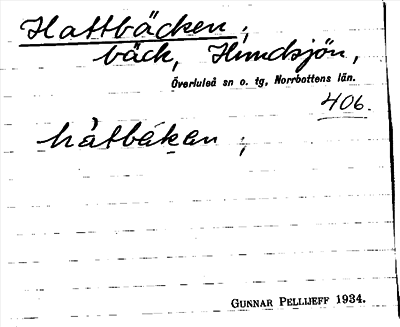 Hattbäcken;
bäck, Hundsjön,
Överluleå sn o. tg, Norrbottens län.
406.
håtbäkan;
GUNNAR PELLIJEFF 1934.